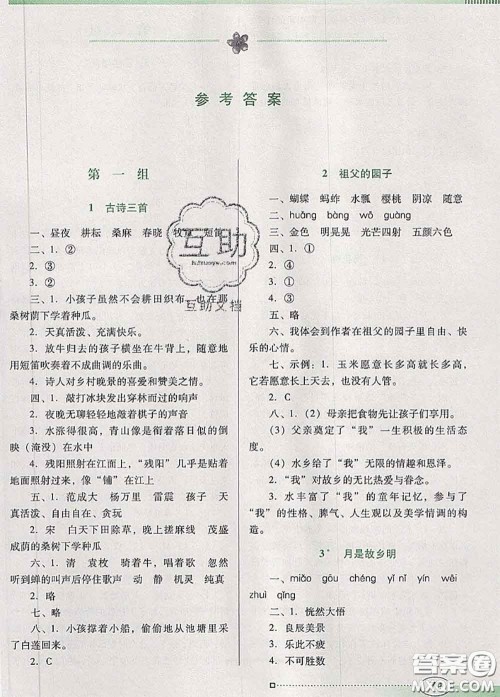 参考答案
第一组
1 古诗三首
一、昼夜 耕耘 桑麻 春晓 牧童 短笛
二、1. ②
2. ③
3. ①
三、1. 小孩子虽然不会耕田织布，也在那
桑树荫下学着种瓜。
2. 天真活泼、充满快乐。
3. 放牛归去的孩子横坐在牛背上，随意地
用短笛吹奏着不成曲调的乐曲。
4. 诗人对乡村晚景的喜爱和赞美之情。
四、1. 敲打冰块发出穿林而过的响声
2. 夜晚无聊轻轻地敲着棋子的声音
3. 水涨得很高，青山像是衔着落日的倒
映（淹没）在水中
4. 残阳照射在江面上，“残阳”几乎是贴
着地面照射过来，像“铺”在江上
五、1. 范成大 杨万里 雷震 孩子 天
真 活泼 自由 快乐
2. 宋 白天下田除草，晚上搓麻线 茂盛
成荫的桑树下学种瓜
六、1. 清 袁枚 骑着牛，唱着歌 忽然
听见蝉的叫声后停住歌声 动 静 机灵 纯真
2. 略
七、略
八、1. 小孩撑着小船，偷偷地从池塘里采
了白莲回来。
2. C
2 祖父的园子
一、蝴蝶 蚂蚱 水瓢 樱桃 阴凉 随意
二、huǎng bàng wō guāng
三、金色 明晃晃 光芒四射 五颜六色
四、1. ①
2. ④
3. ①
4. ③
五、略
六、我体会到作者在祖父的园子里自由、快
乐的心情。
七、示例：1. 玉米愿意长多高就长多高，它
若愿意长上天去，也没有人管。
2. C
八、1. (2) 母亲把食物先让孩子们享用。
(3) 父亲奠定了“我”一生积极的生活态
度。
(4) 水乡给了“我”无限的情趣和恩泽。
2. 父母对“我”的无比热爱与眷念。
3. 水丰富了“我”的童年记忆，并构成了
“我”的性格、脾气、人生观以及美学情调的构
成。
3* 月是故乡明
一、miǎo gōu chéng yī nī yín wēi
zhuì qīng
二、1. 恍然大悟
2. 良辰美景
3. 乐此不疲
4. 不可胜数
互助
互助文档
答案圈